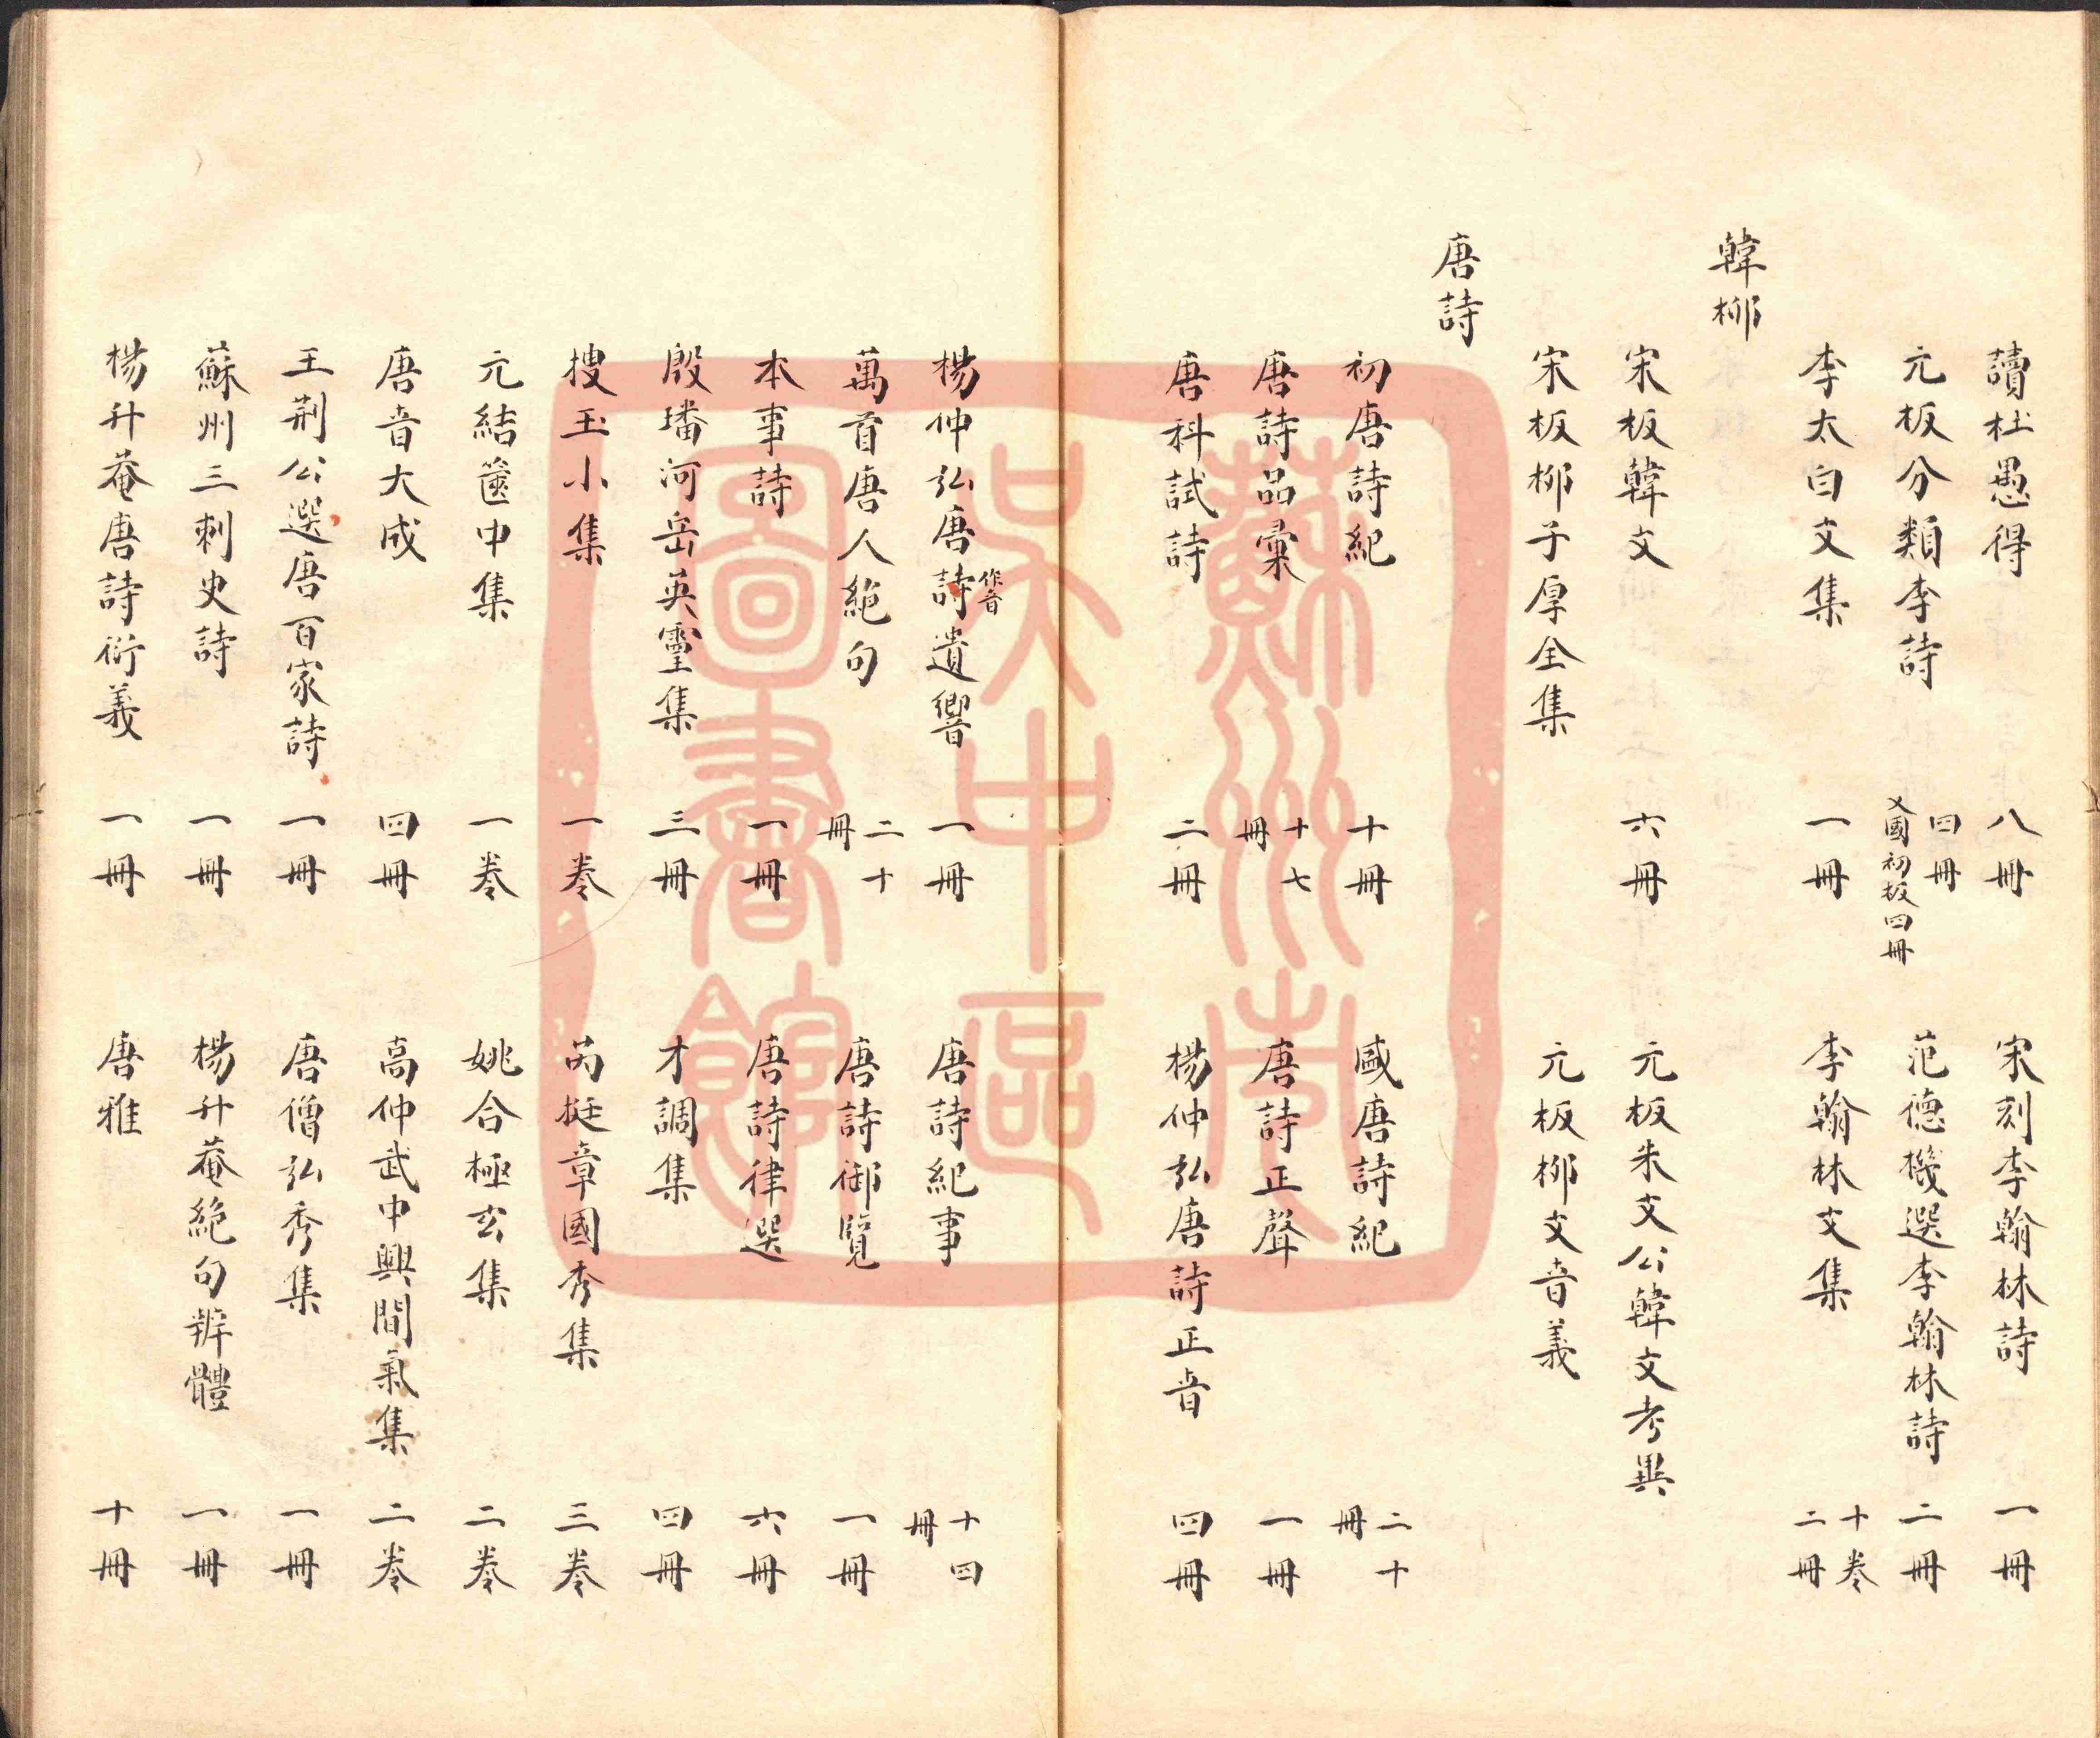 讀杜愚得 八冊 宋刻李翰林詩 一冊
元板分類李詩 四冊 又國初板四冊 范德機選李翰林詩 二冊
李太白文集 一冊 李翰林文集 十卷二冊
韓柳
宋板韓文 六冊 元板朱文公韓文考異
宋板柳子厚全集 元板柳文音義
唐詩
初唐詩紀 十冊 盛唐詩紀 二十冊
唐詩品彙 十七冊 唐詩正聲 一冊
唐科試詩 二冊 楊仲弘唐詩正音 四冊
楊仲弘唐詩遺響 作音 一冊 唐詩紀事 十四冊
萬首唐人絕句 二十冊 唐詩御覽 一冊
本事詩 一冊 唐詩律選 六冊
殷璠河岳英靈集 三冊 才調集 四冊
搜玉小集 一卷 芮挺章國秀集 三卷
元結篋中集 一卷 姚合極玄集 二卷
唐音大成 四冊 高仲武中興間氣集 二卷
王荊公選唐百家詩 一冊 唐僧弘秀集 一冊
蘇州三刺史詩 一冊 楊升菴絕句辨體 一冊
楊升菴唐詩衍義 一冊 唐雅 十冊
蘇州市
吳中區
圖書館